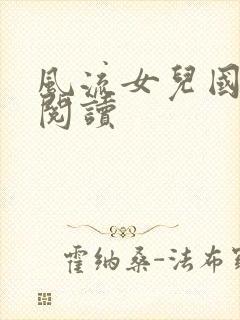 風流女兒國
閱讀
霍納桑-法布